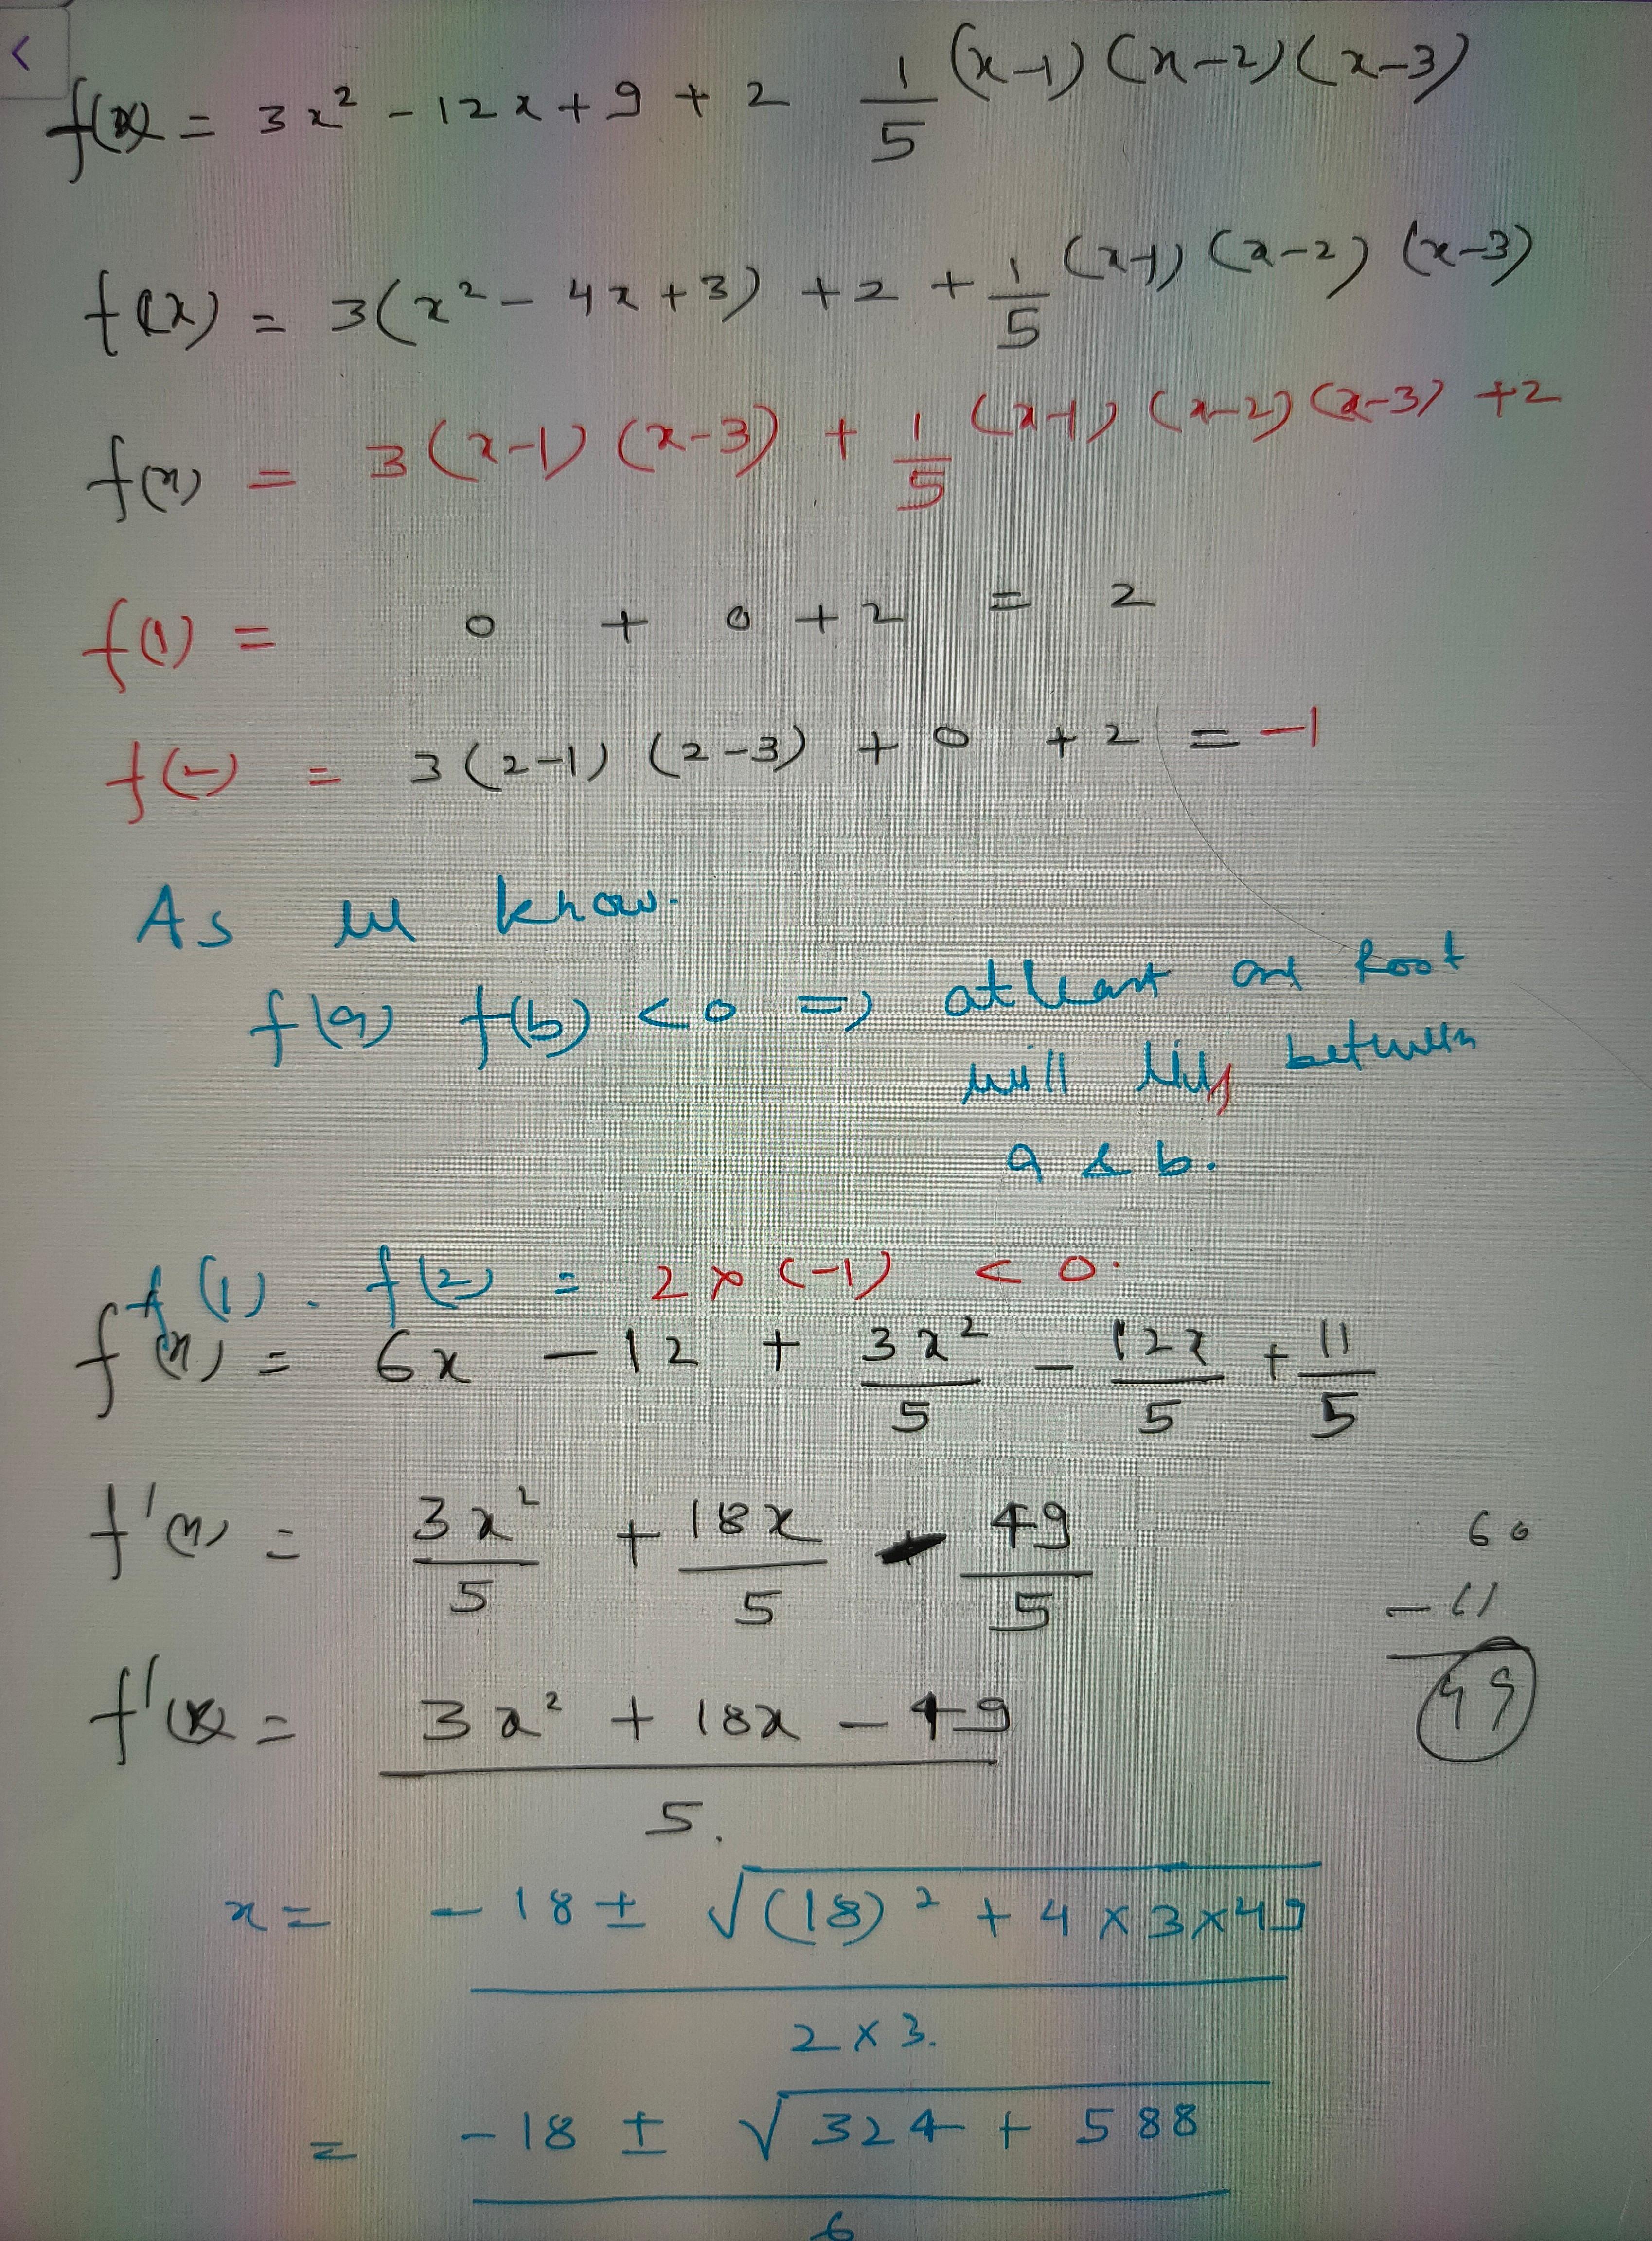 <
f(x) = 3x² - 12x + 9 + 2 1/5 (x-1) (x-2) (x-3)
f(x) = 3(x² - 4x + 3) + 2 + 1/5 (x-1) (x-2) (x-3)
f(x) = 3(x-1) (x-3) + 1/5 (x-1) (x-2) (x-3) + 2
f(1) = 0 + 0 + 2 = 2
f(2) = 3(2-1) (2-3) + 0 + 2 = -1
As we know.
f(a) f(b) < 0 => atleast one Root
will lies between
a & b.
f(1) . f(2) = 2 × (-1) < 0.
f'(x) = 6x - 12 + 3x²/5 - 12x/5 + 11/5
f'(x) = 3x²/5 + 18x/5 - 49/5
60
- 11
49
f'(x) = (3x² + 18x - 49)/5.
x = (-18 ± √((18)² + 4×3×49))/(2×3.)
= (-18 ± √(324 + 588))/6